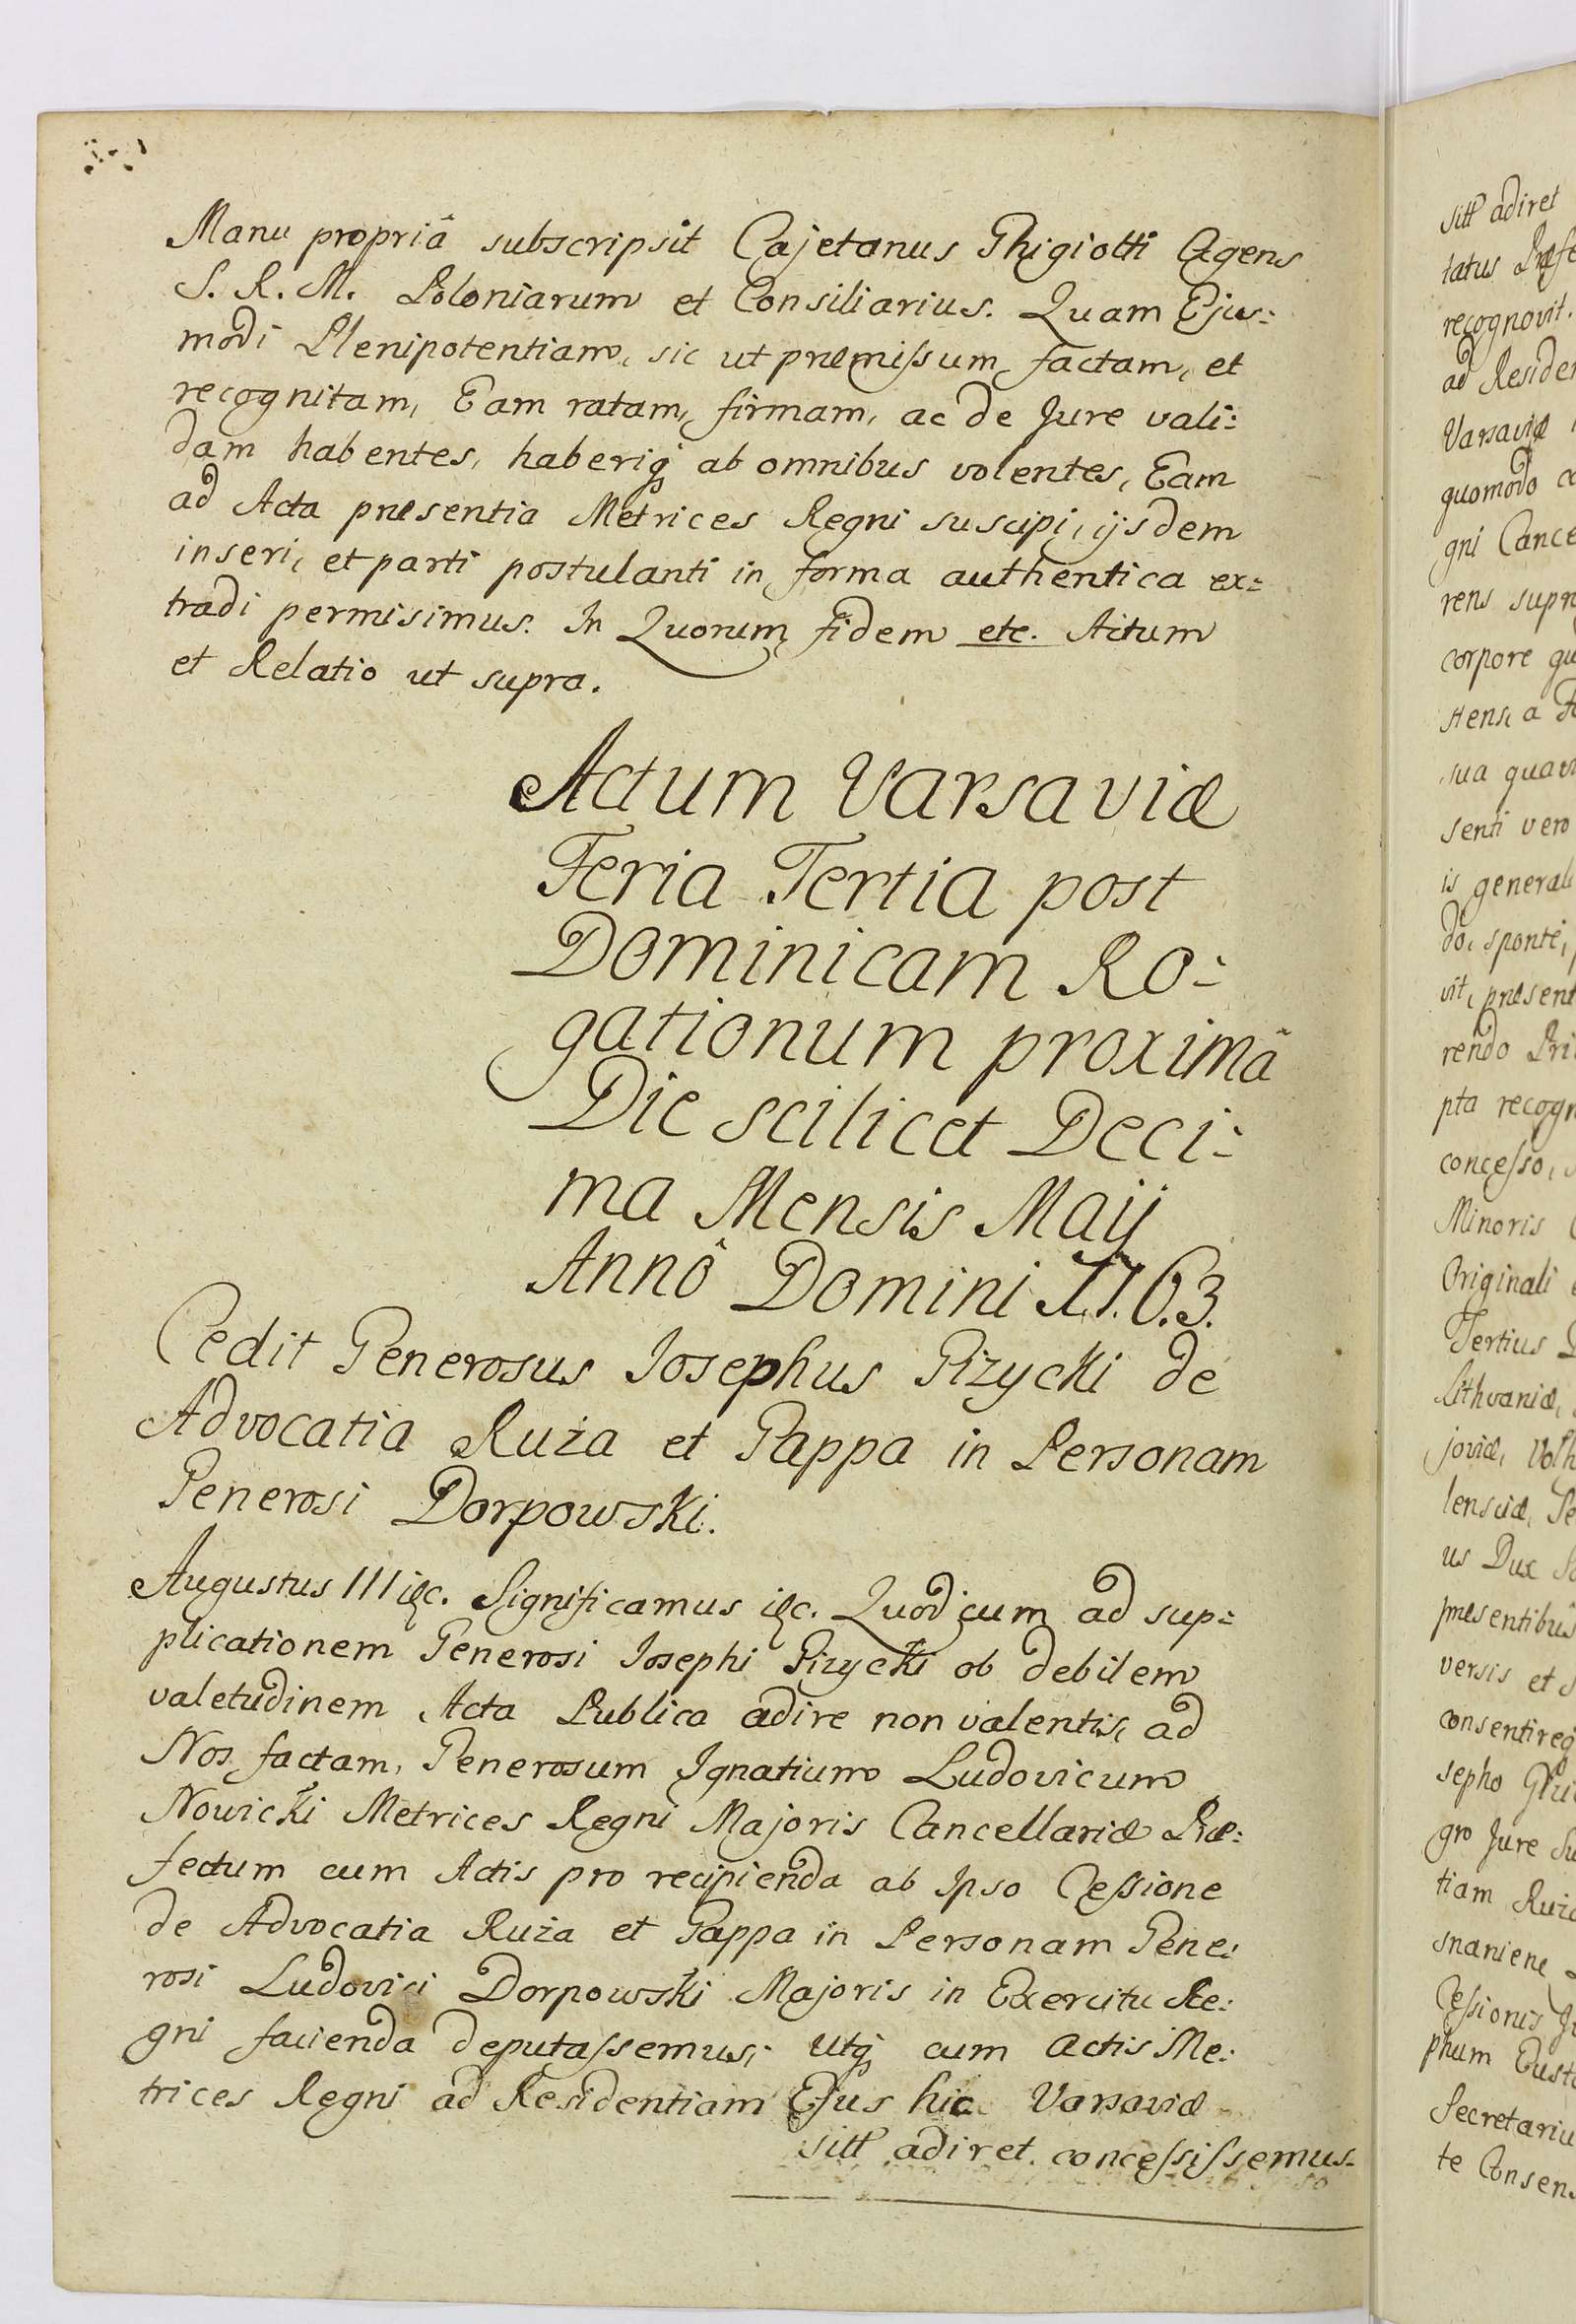 Manu propriâ subscripsit Cajetanus Ghigiotti Agens
S. R. M. Poloniarum et Consiliarius. Quam Ejus:
modi Plenipotentiam, sic ut præmissum factam, et
recognitam, Eam ratam, firmam, ac de Jure vali:
dam habentes, haberiq ab omnibus volentes, Eam
ad Acta præsentia Metrices Regni suscipi, ijsdem
inseri, et parti postulanti in forma authentica ex:
tradi permisimus. In Quorum fidem etc. Actum
et Relatio ut supra.
Actum Varsaviæ
Feria Tertia post
Dominicam Ro:
gationum proximâ
Die scilicet Deci:
ma Mensis Maij
Annô Domini 1763.
Cedit Generosus Josephus Gizycki de
Advocatia Ruża et Gappa in Personam
Generosi Dorpowski.
Augustus III etc. Significamus etc. Quod cum ad sup:
plicationem Generosi Josephi Gizycki ob debilem
valetudinem Acta Publica adire non valentis, ad
Nos factam, Generosum Ignatium Ludovicum
Nowicki Metrices Regni Majoris Cancellariæ Præ:
fectum cum Actis pro recipienda ab Ipso Cessione
de Advocatia Ruża et Gappa in Personam Gene:
rosi Ludovici Dorpowski Majoris in Exercitu Re:
gni facienda deputassemus, utq cum actis Me:
trices Regni ad Residentiam Ejus hic Varsaviæ
sitt adiret concessissemus.
sitt adiret
tatus Præfe
recognovit.
ad Residen
Varsaviæ
quomodo
gni Cance
rens supra
corpore
stens, a
sua quavi
senti vero
is general
do, sponte,
vit, præsent
rendo Pri
pta recogn
concesso,
Minoris
Originali
Tertius
Lithvaniæ,
joviæ, Volh
lensciæ,
us Dux
præsentibus
versis et
consentireq
sepho
gro Jure
tiam Ruża
snaniene
Cessionis
phum Eusta
Secretariu
te Consens